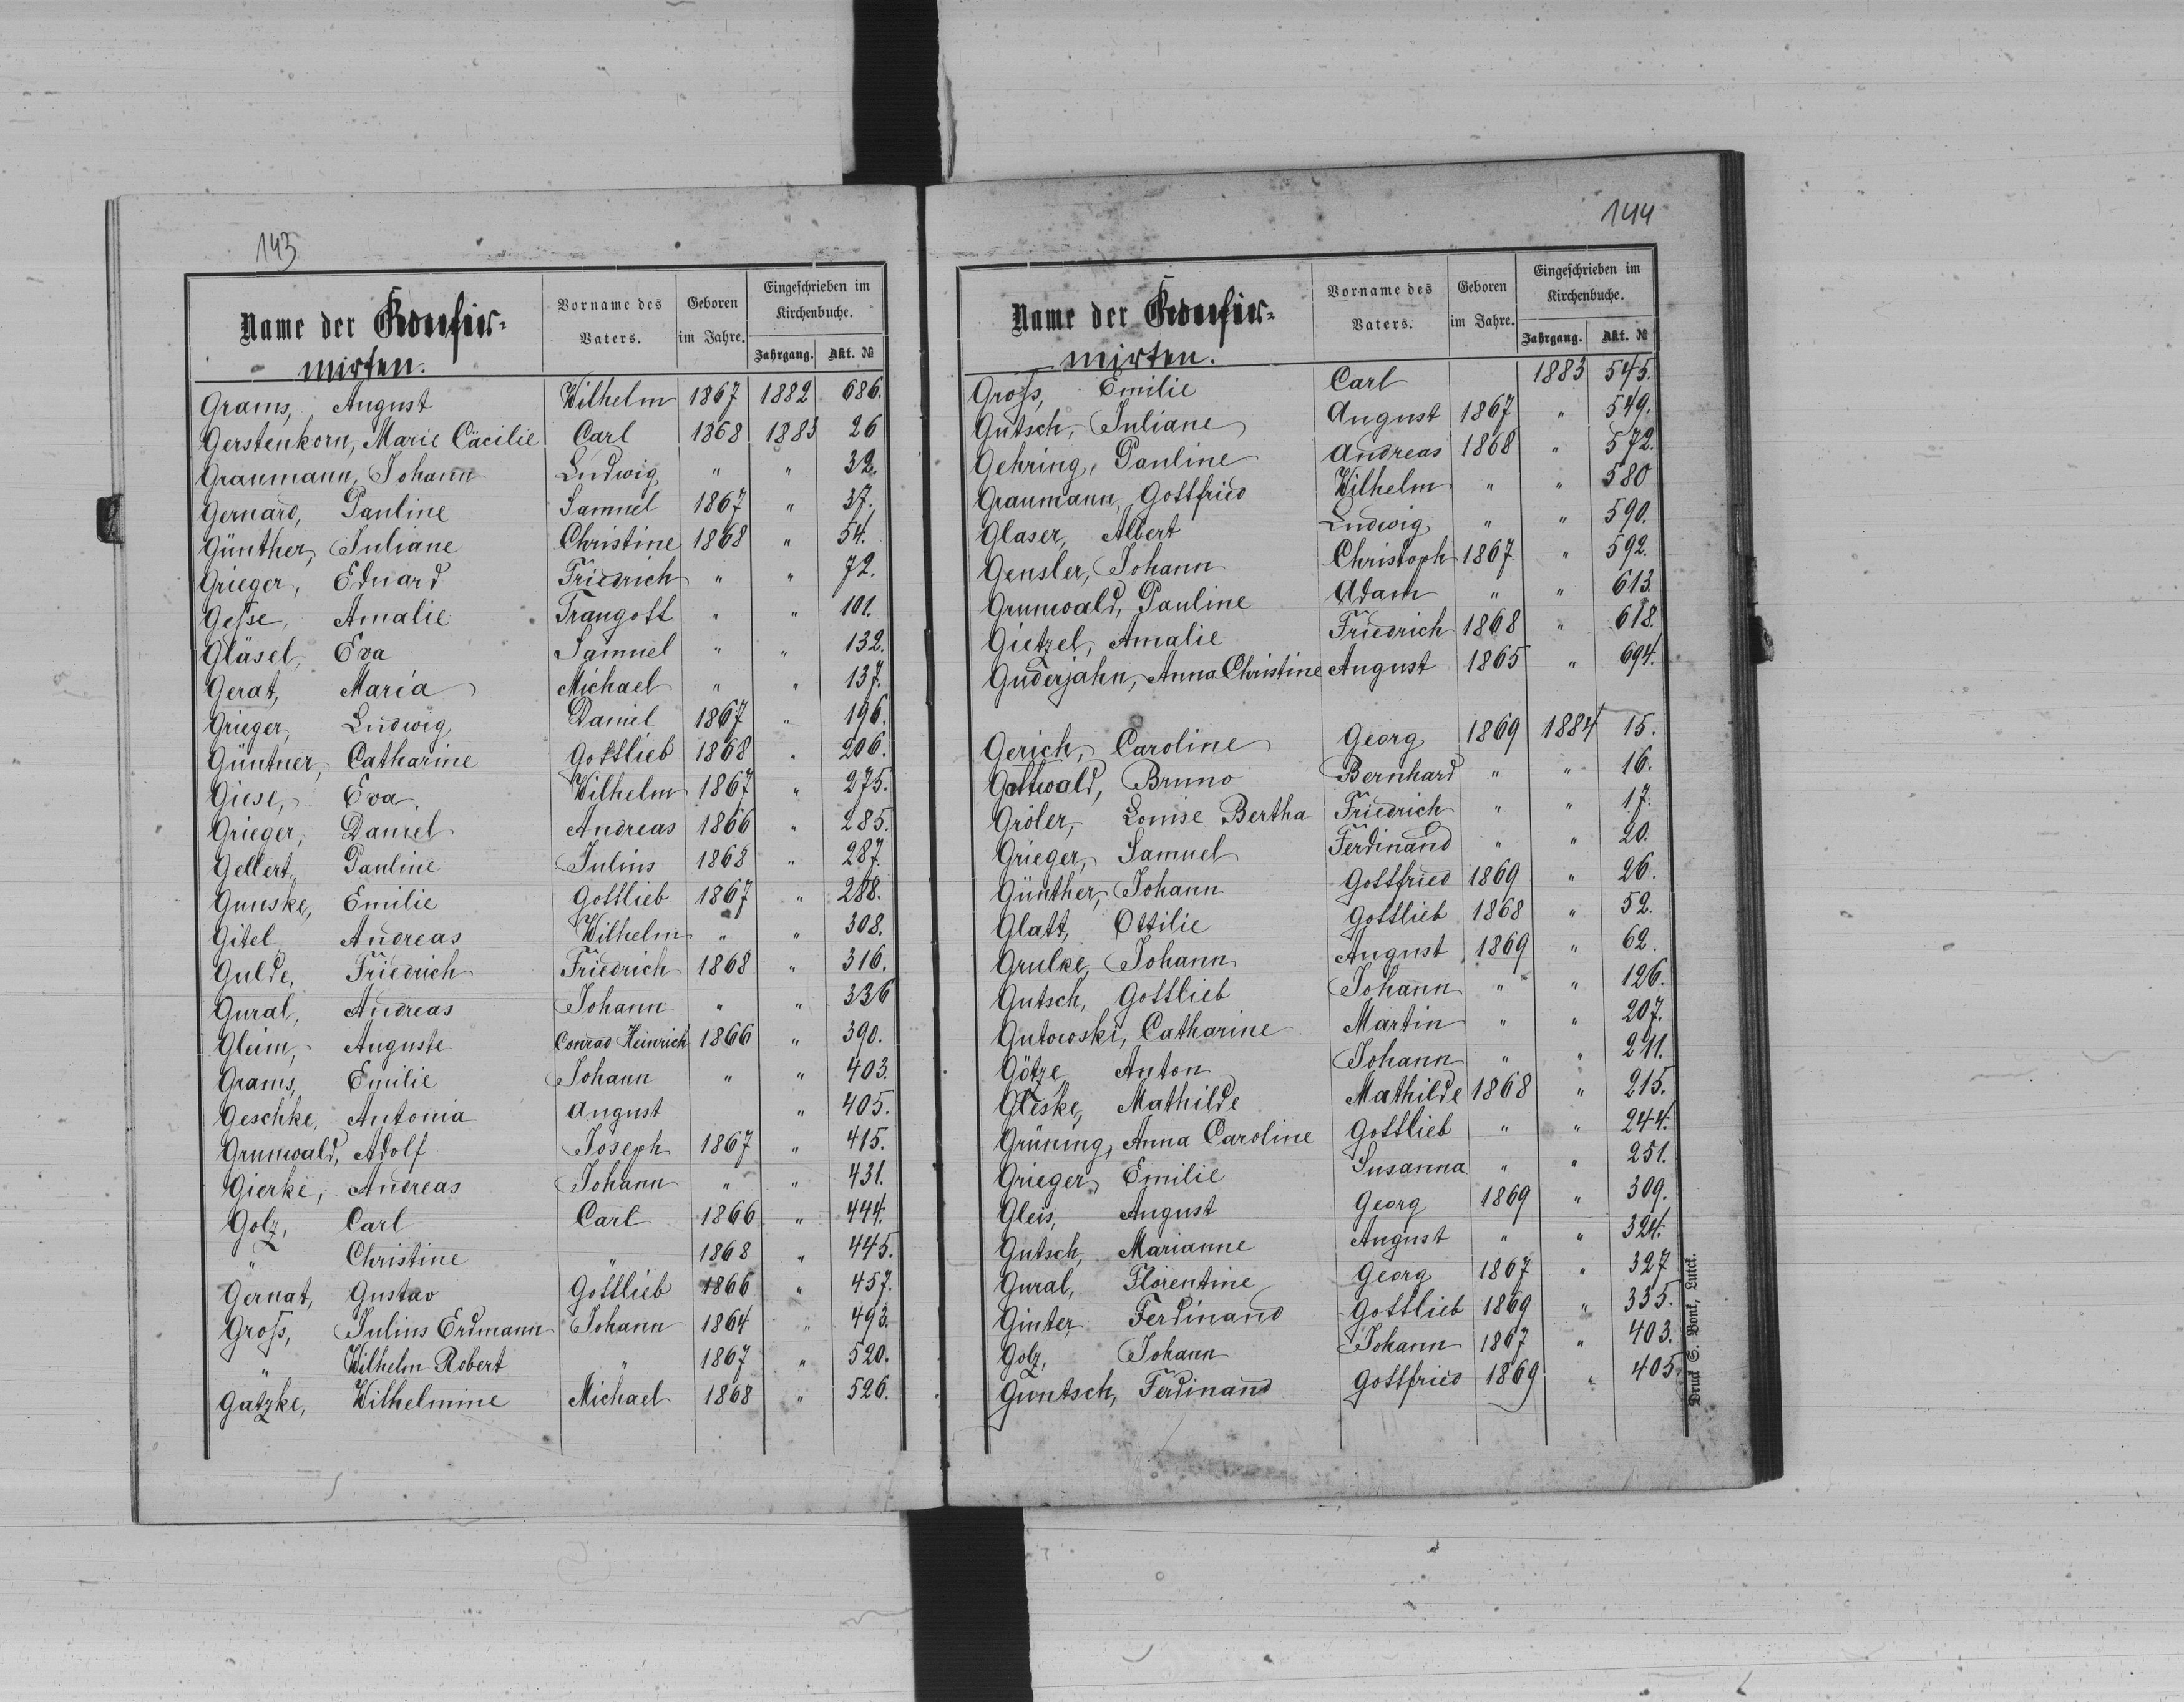 143
Name der Konfir-
mirten.
Vorname des Vaters.
Geboren im Jahre.
Eingeschrieben im Kirchenbuche.
Jahrgang. Akt. №
Grams, August Wilhelm 1867 1882 686.
Gerstenkorn, Marie Cäcilie Carl 1868 1883 26
Graumann, Johann Ludwig " " 32.
Gernard, Pauline Samuel 1867 " 37.
Günther, Juliane Christine 1868 " 54.
Grieger, Eduard Friedrich " " 72.
Gesse, Amalie Traugott " " 101.
Gläsel, Eva Samuel " " 132.
Gerat, Maria Michael " " 137.
Grieger, Ludwig Daniel 1867 " 196.
Güntner, Catharine Gottlieb 1868 " 206.
Giese, Eva. Wilhelm 1867 " 275.
Grieger, Daniel Andreas 1866 " 285.
Gellert, Pauline Julius 1868 " 287.
Gunske, Emilie Gottlieb 1867 " 288.
Gitel, Andreas Wilhelm " " 308.
Gulde, Friedrich Friedrich 1868 " 316.
Gural, Andreas Johann " " 336
Gleim, Auguste Conrad Heinrich 1866 " 390.
Grams, Emilie Johann " " 403.
Geschke, Antonia August " 405.
Grunwald, Adolf Joseph 1867 " 415.
Gierke, Andreas Johann " " 431.
Golz, Carl Carl 1866 " 444.
" Christine " 1868 " 445.
Gernat, Gustav Gottlieb 1866 " 457.
Groß, Julius Erdmann Johann 1864 " 493.
" Wilhelm Robert " 1867 " 520.
Gatzke, Wilhelmine Michael 1868 " 526.
144
Name der Konfir-
mirten.
Vorname des Vaters.
Geboren im Jahre.
Eingeschrieben im Kirchenbuche.
Jahrgang. Akt. №
Groß, Emilie Carl 1883 545.
Gutsch, Juliane August 1867 " 549.
Gehring, Pauline Andreas 1868 " 572.
Graumann, Gottfried Wilhelm " " 580
Glaser, Albert Ludwig " " 590.
Gensler, Johann Christoph 1867 " 592.
Grunwald, Pauline Adam " " 613.
Gietzel, Amalie Friedrich 1868 " 618.
Guderjahn, Anna Christine August 1865 " 694.
Gerich, Caroline Georg 1869 1884 15.
Gottwald, Bruno Bernhard " " 16.
Gröler, Louise Bertha Friedrich " " 17.
Grieger, Samuel Ferdinand " " 20.
Günther, Johann Gottfried 1869 " 26.
Glatt, Ottilie Gottlieb 1868 " 52.
Grulke, Johann August 1869 " 62.
Gutsch, Gottlieb Johann " " 126.
Gutowski, Catharine Martin " " 207.
Götze Anton Johann " " 211.
Gleske, Mathilde Mathilde 1868 " 215.
Grüning, Anna Caroline Gottlieb " " 244.
Grieger, Emilie Susanna " " 251.
Gleis, August Georg 1869 " 309.
Gutsch, Marianne August " " 324.
Gural, Florentine Georg 1867 " 327
Ginter, Ferdinand Gottlieb 1869 " 335.
Golz, Johann Johann 1867 " 403.
Guntsch, Ferdinand Gottfried 1869 " 405.
Druck S. Bonk, Lutck.